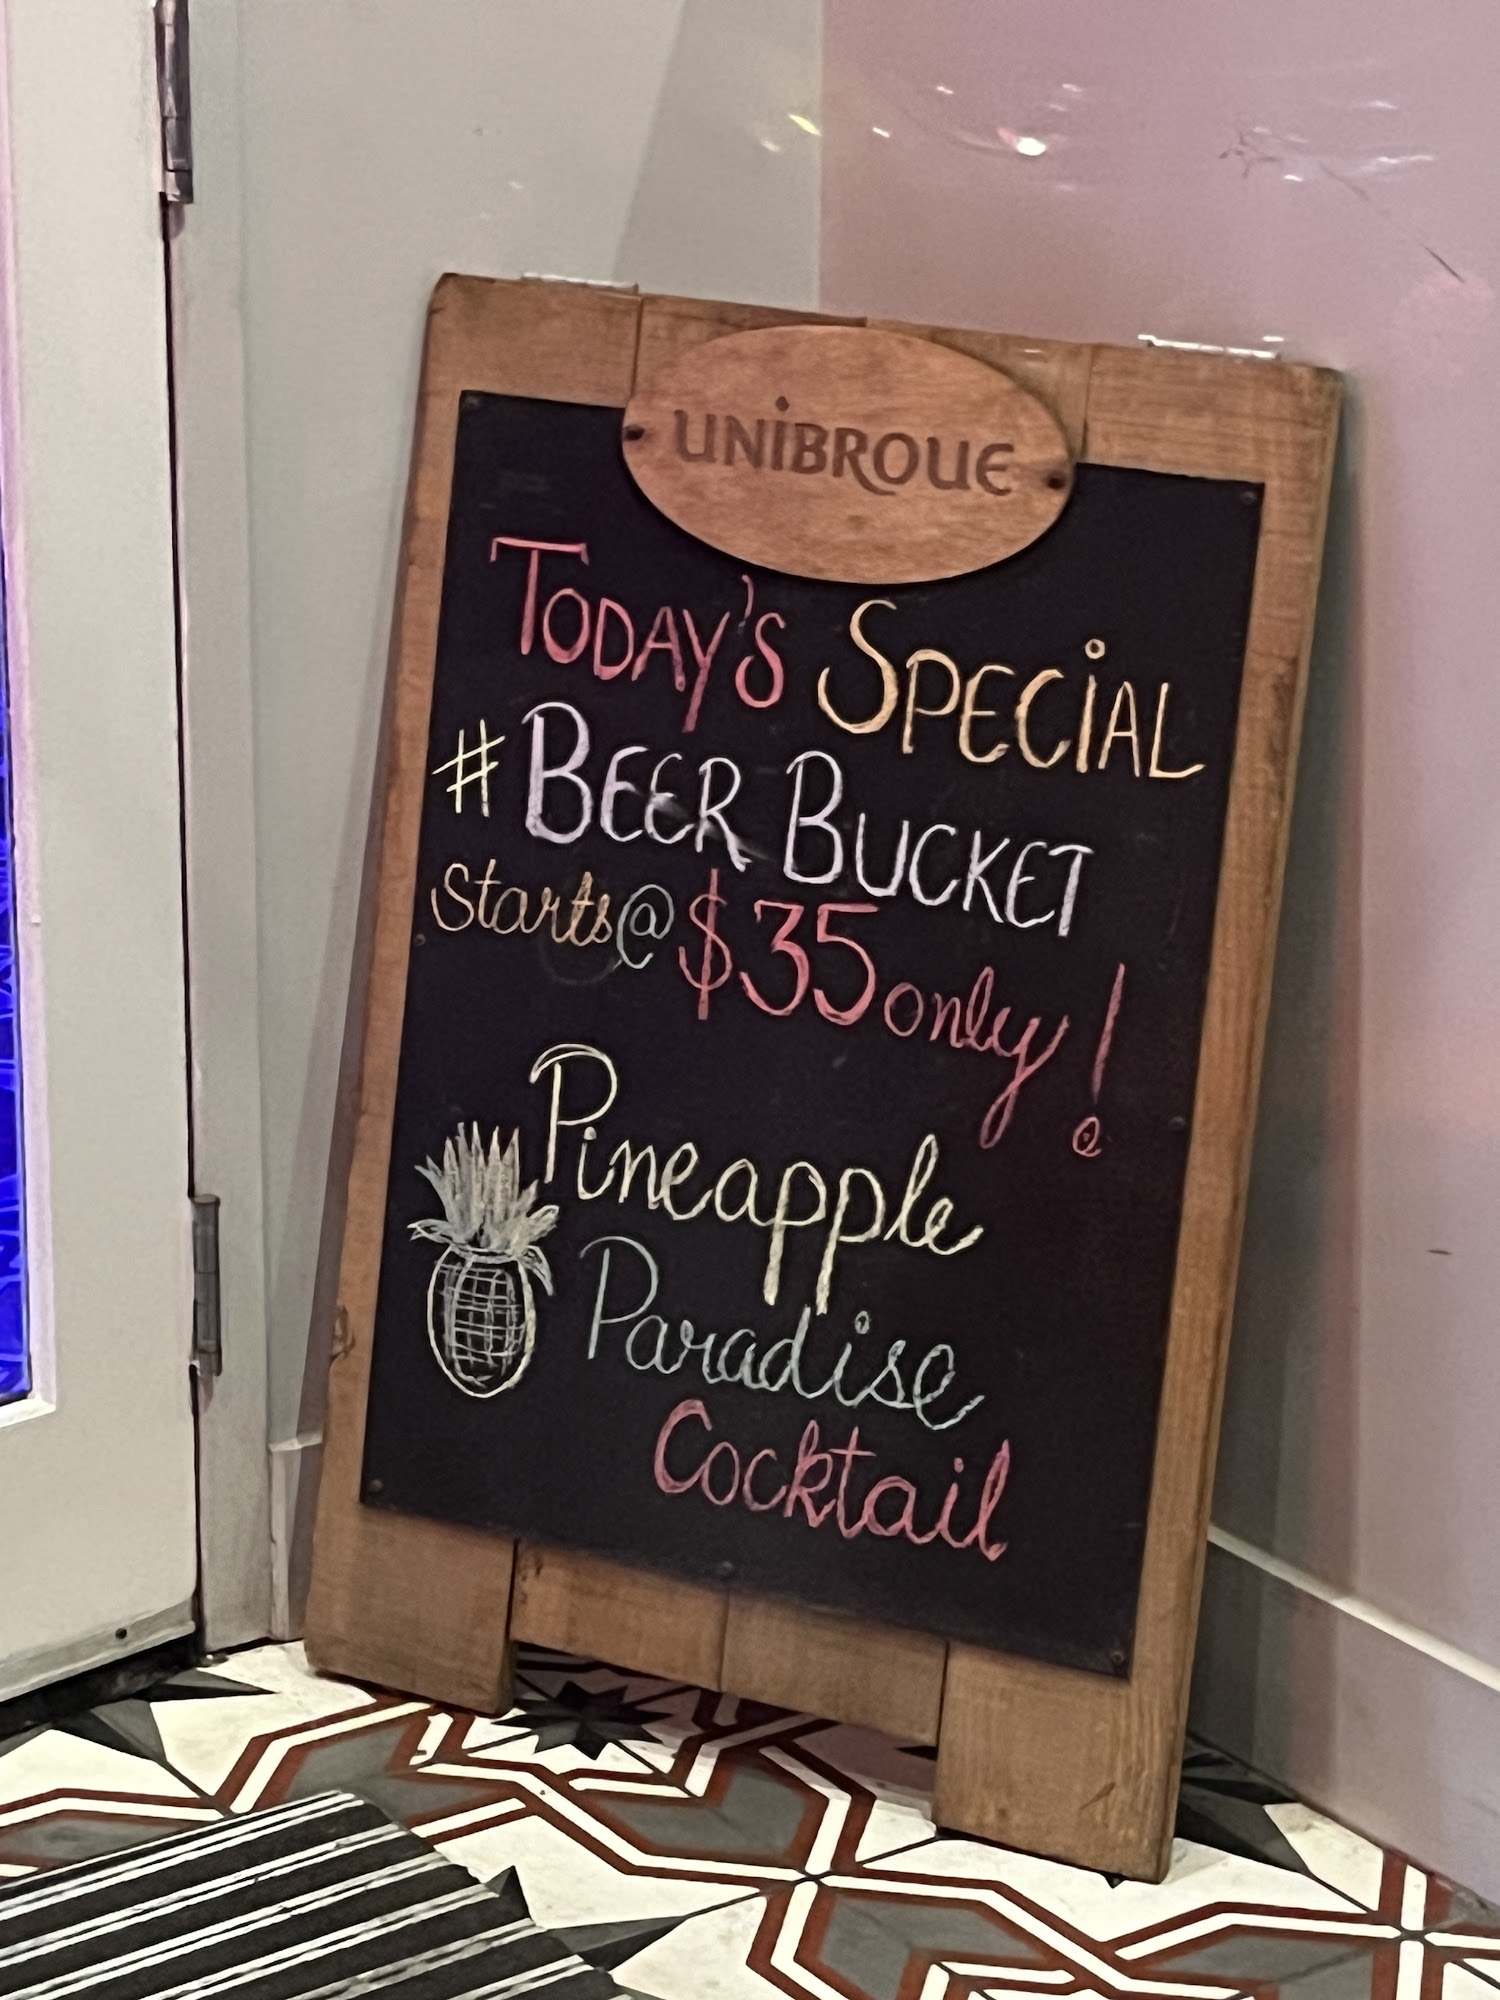 UNIBROUE
TODAY'S SPECIAL
# BEER BUCKET
Starts@ $35 only!
Pineapple
Paradise
Cocktail